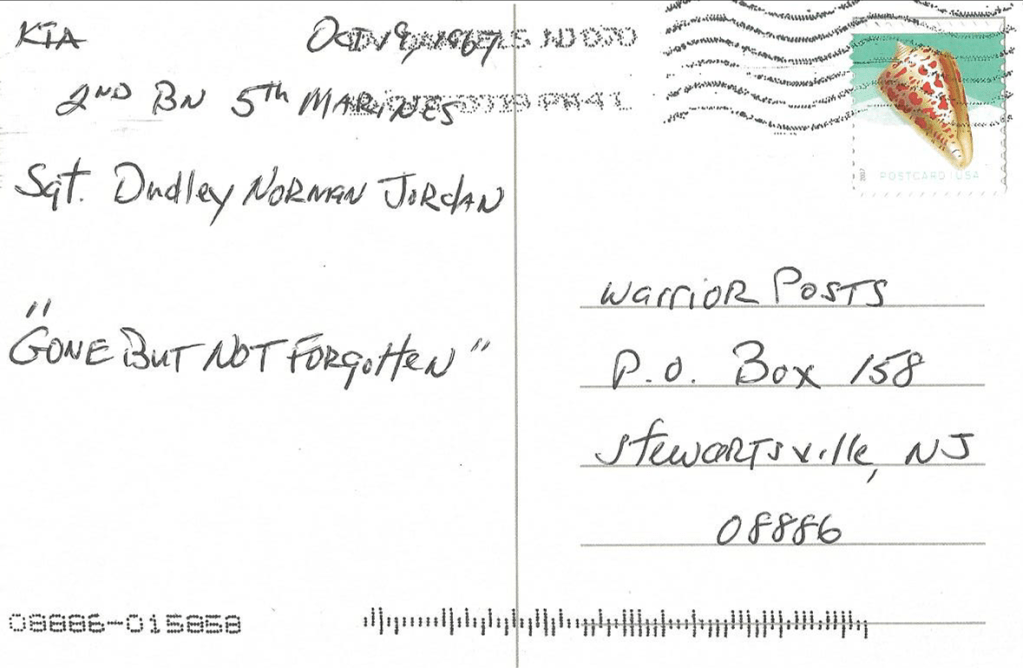 KIA Oct 19, 1967
2ND BN 5th MARINES
Sgt. Dudley NORMAN JORdAN
"GONE BUT NOT FORgOttEN"
POSTCARD USA
WarrioR PosTS
P.O. Box 158
StewaRTSville, NJ
08886
08886-015858